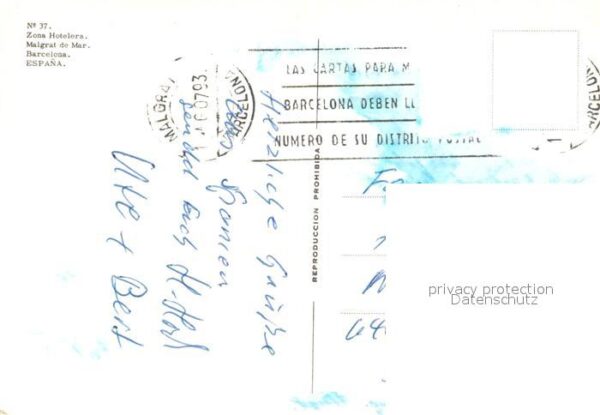 Nº 37.
Zona Hotelera.
Malgrat de Mar.
Barcelona.
ESPAÑA.
MALGRAT
BARCELONA
LAS CARTAS PARA
BARCELONA DEBEN
NUMERO DE SU DISTRITO POSTAL
BARCELONA
REPRODUCCION PROHIBIDA
Herzliche Grüße
aus Spanien
sendet Euch
Ute + Bert
privacy protection
Datenschutz